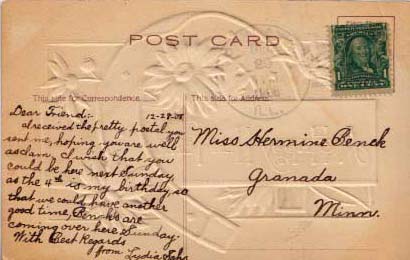 POST CARD
This side for Correspondence.
This side for Address.
ILL.
1
Dear Friend:-
12-28-08
I received the pretty postal you
sent me, hoping you are well
as I am. I wish that you
could be here next Sunday
as the 4th is my birthday so
that we could have another
good time, Pencks are
coming over here Sunday.
With Best Regards
from Lydia
Miss Hermine Penck
Granada
Minn.